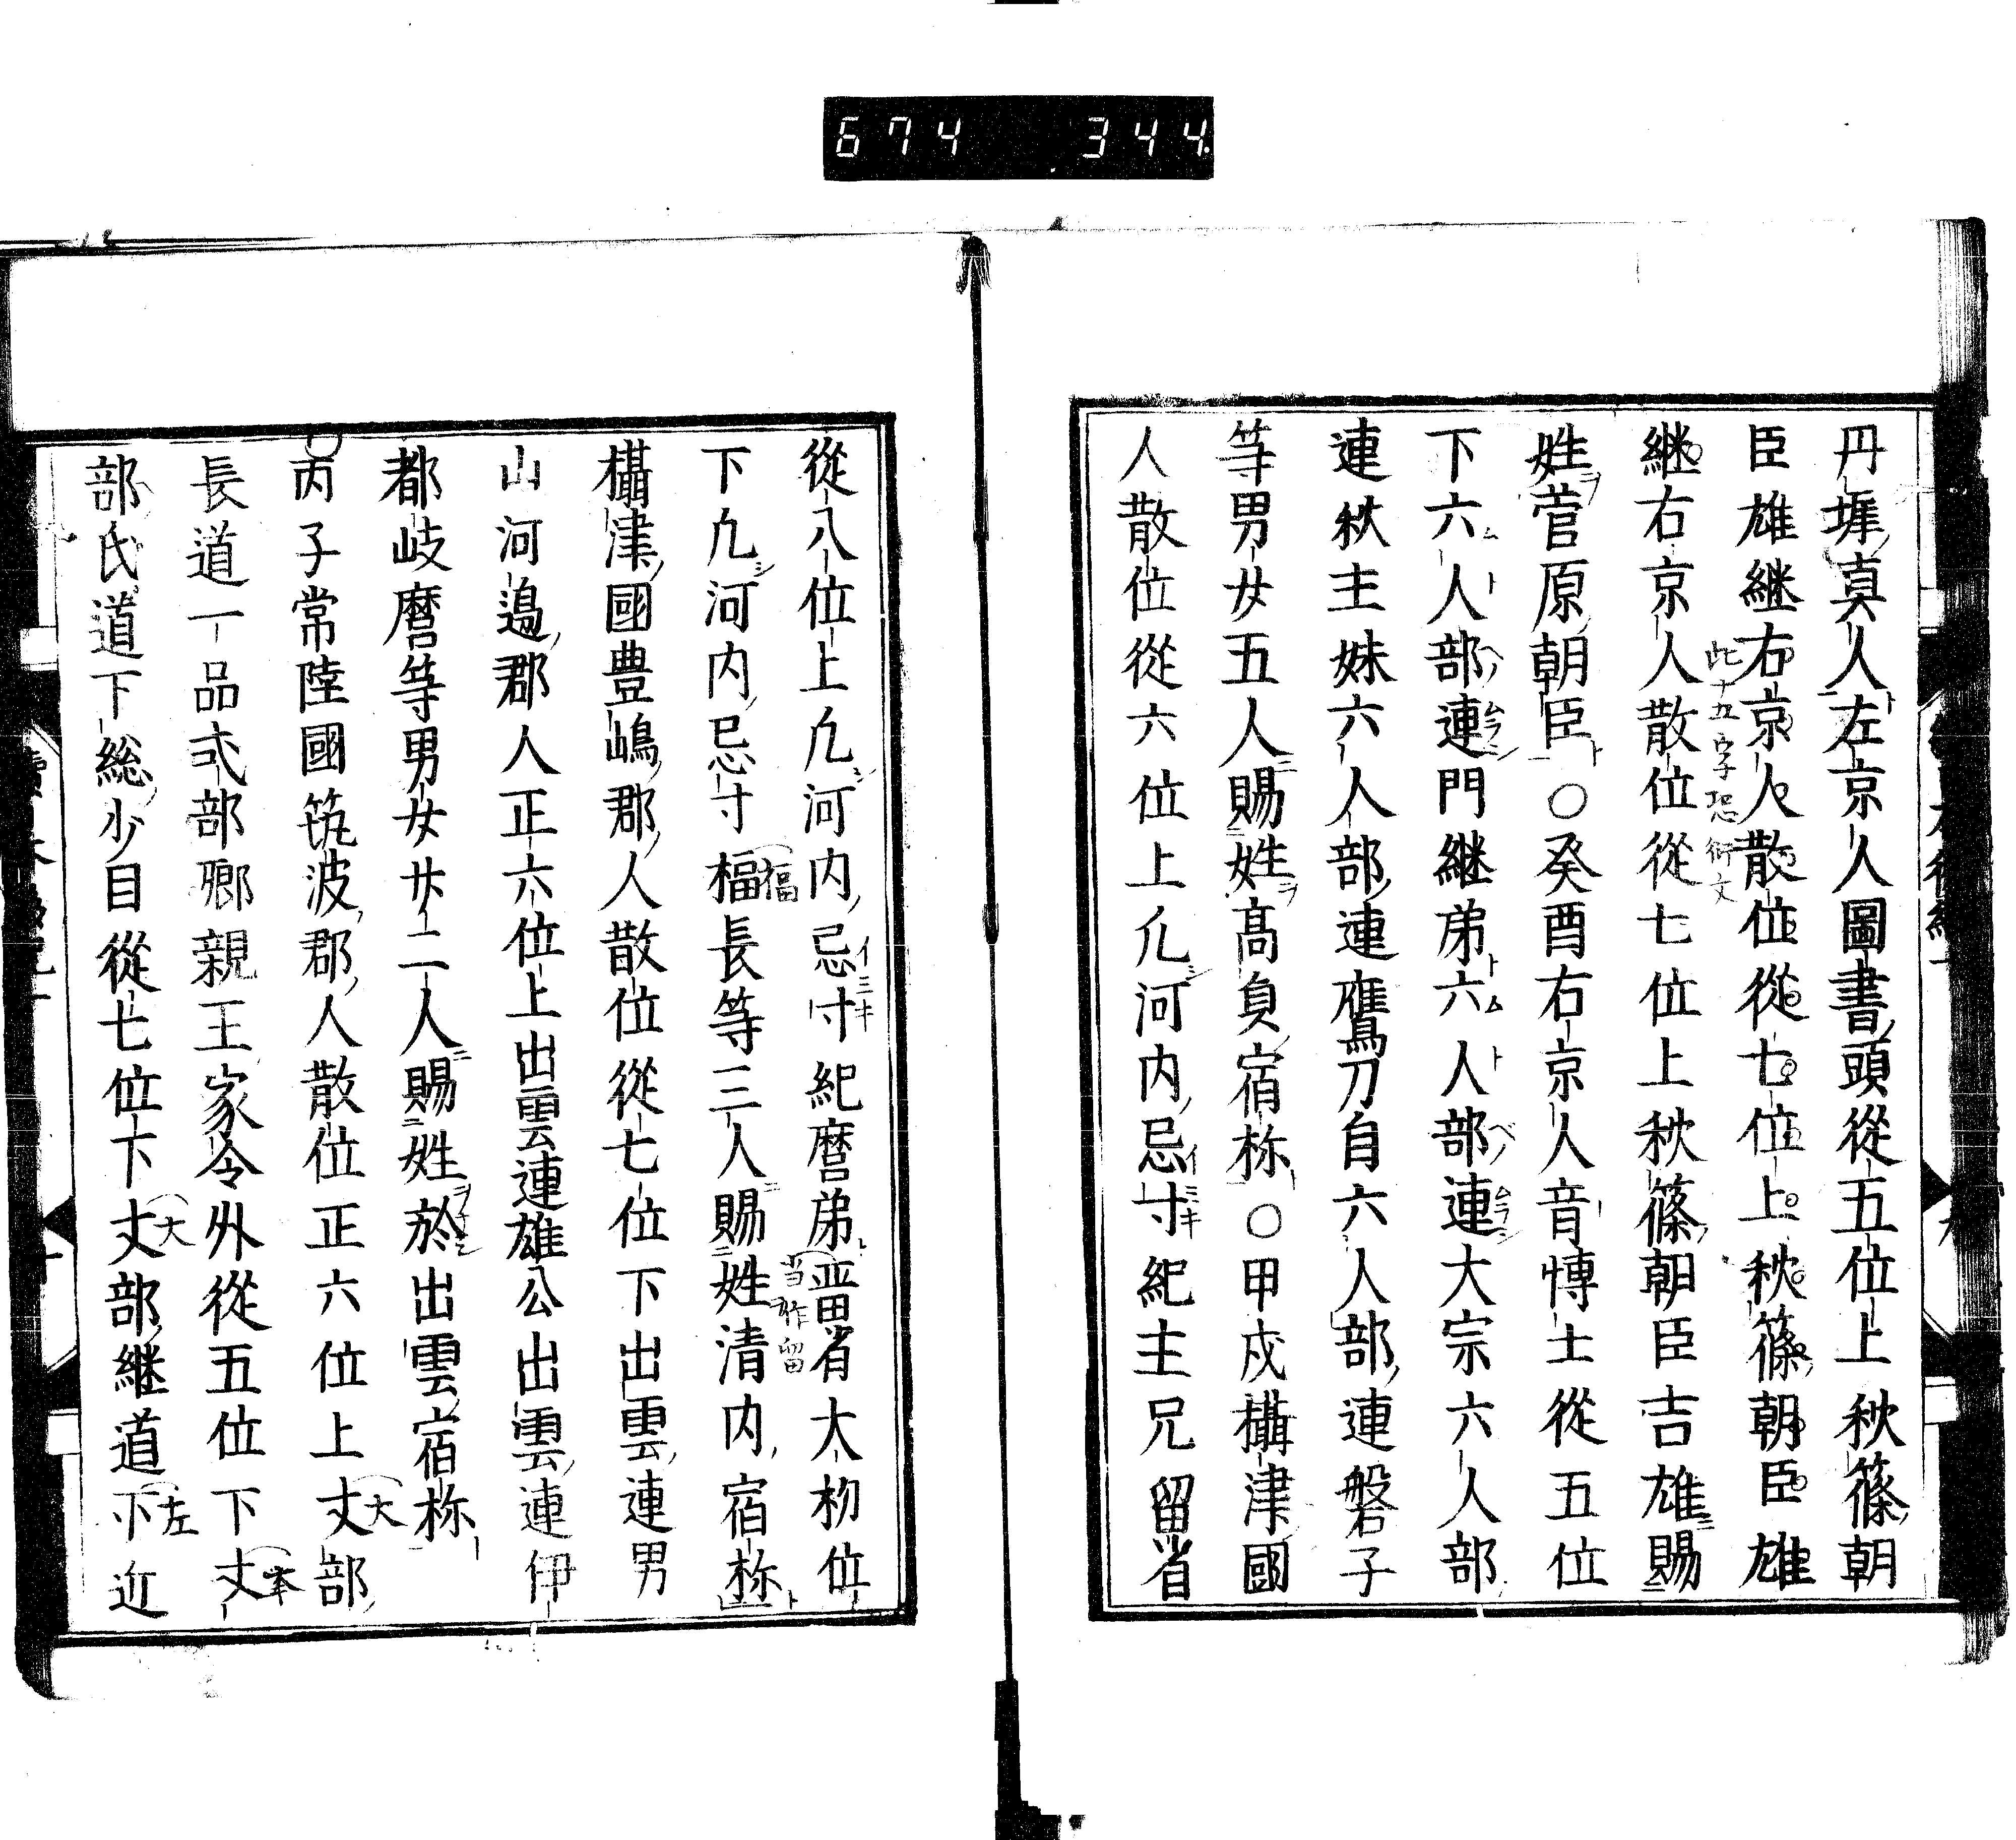 674 344
丹墀真人左京人圖書頭從五位上秋篠朝
臣雄継右京人散位從七位上秋篠朝臣雄
此十五字恐衍文
継右京人散位從七位上秋篠朝臣吉雄賜
姓菅原朝臣○癸酉右京人音博士從五位
下六人部連門継弟六人部連大宗六人部
連秋主妹六人部連鷹刀自六人部連磐子
等男女五人賜姓高貞宿祢○甲戌攝津國
人散位從六位上凡河内忌寸紀主兄留省
從八位上凡河内忌寸紀麿弟畱省大初位
当作留
下凡河内忌寸楅長等三人賜姓清内宿祢
福
攝津國豊嶋郡人散位從七位下出雲連男
山河邉郡人正六位上出雲連雄公出雲連伊
都岐麿等男女廿二人賜姓於出雲宿祢
○丙子常陸國筑波郡人散位正六位上丈部
大
長道一品式部郷親王家令外從五位下丈
本
部氏道下総少目從七位下丈部継道下近
大
左